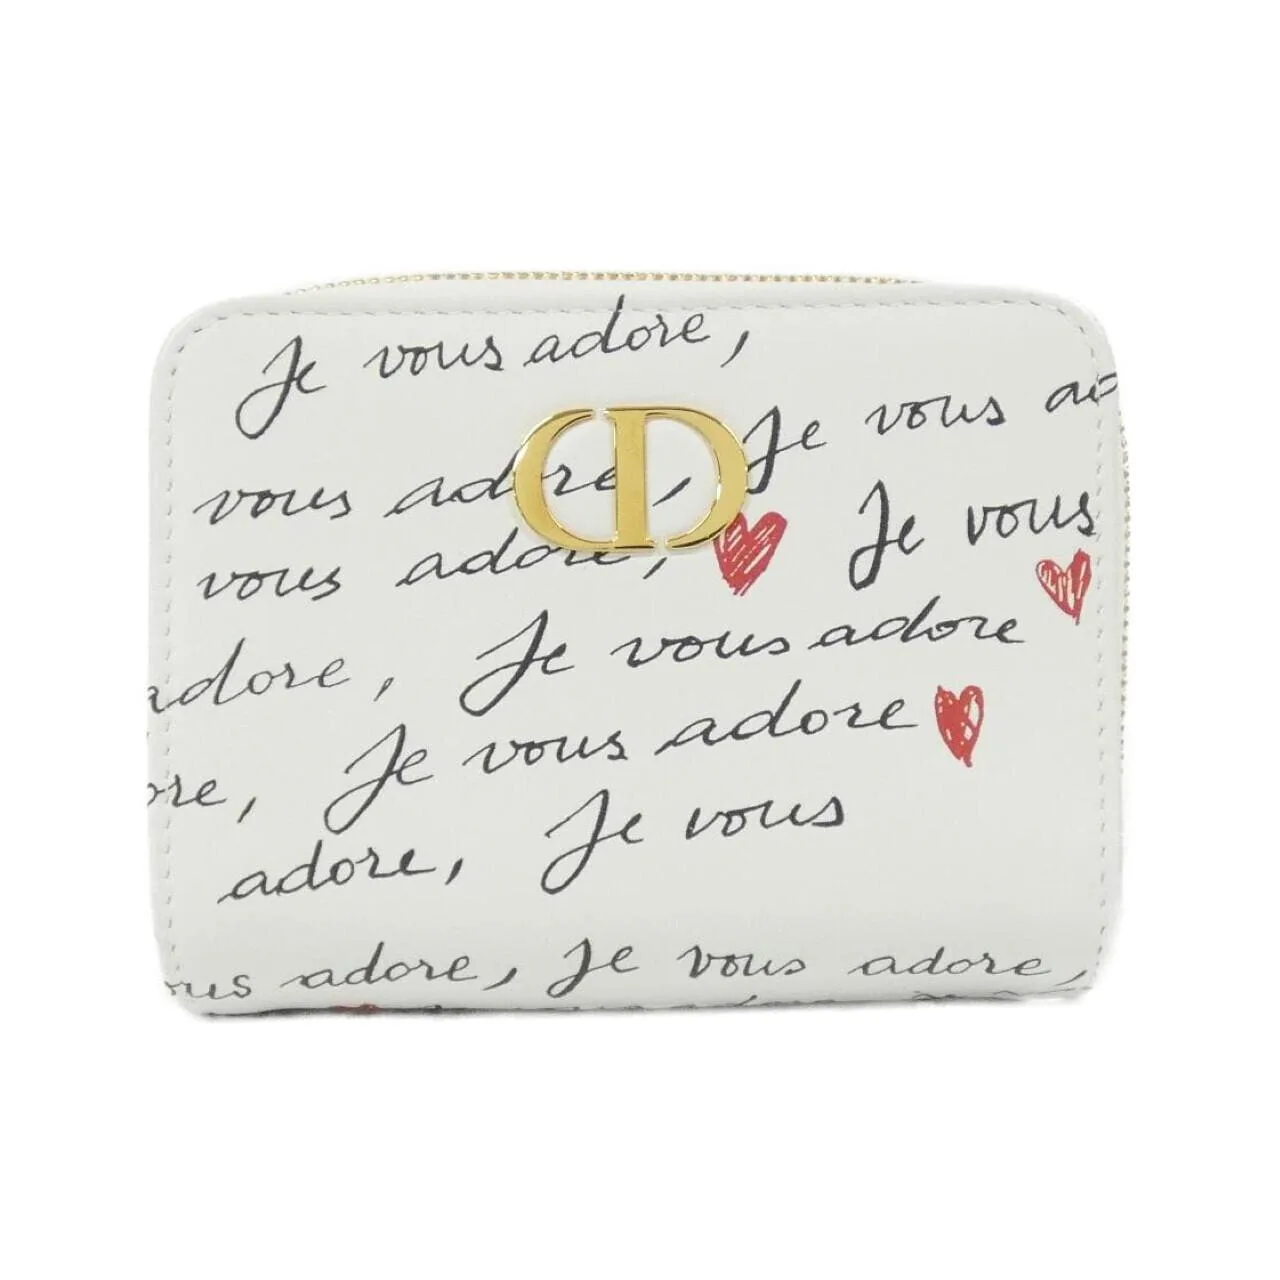 Je vous adore,
vous adore, Je vous ad
vous adore, Je vous
adore, Je vous adore
ore, Je vous adore
adore, Je vous
ous adore, Je vous adore,